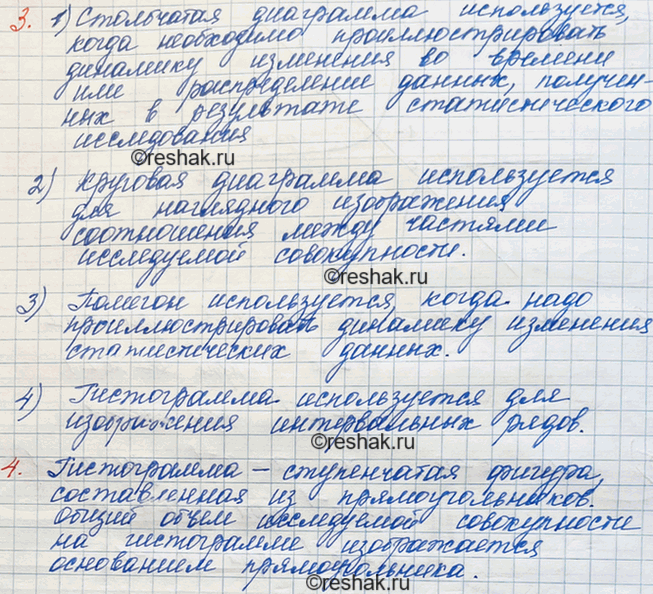 3. 1) Столбчатая диаграмма используется,
когда необходимо проиллюстрировать
динамику изменения во времени
или распределение данных, получен-
ных в результате статистического
исследования
©reshak.ru
2) Круговая диаграмма используется
для наглядного изображения
соотношения между частями
исследуемой совокупности.
©reshak.ru
3) Полигон используется, когда надо
проиллюстрировать динамику изменения
статистических данных.
4) Гистограмма используется для
изображения интервальных рядов.
©reshak.ru
4. Гистограмма – ступенчатая фигура,
составленная из прямоугольников.
Общий объем исследуемой совокупности
на гистограмме изображается
основанием прямоугольника.
©reshak.ru